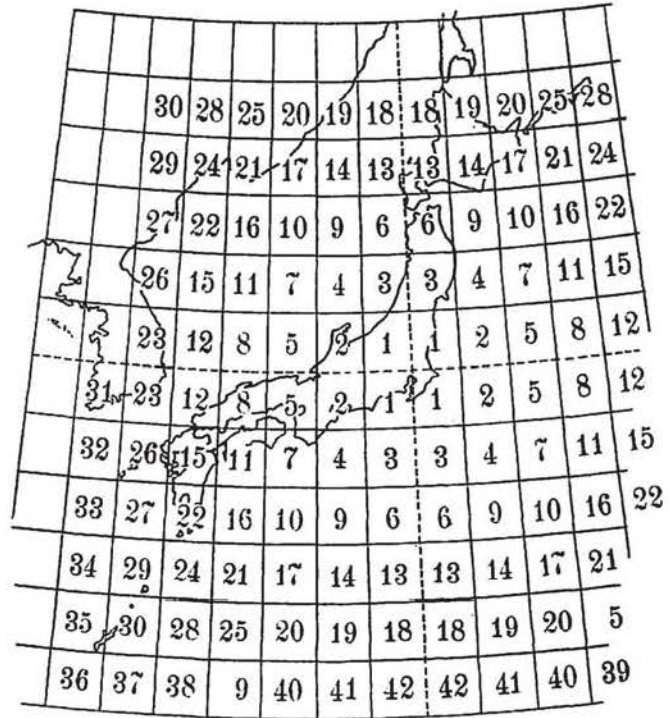 30 28 25 20 19 18 18 19 20 25 28
29 24 21 17 14 13 13 14 17 21 24
27 22 16 10 9 6 6 9 10 16 22
26 15 11 7 4 3 3 4 7 11 15
23 12 8 5 2 1 1 2 5 8 12
31 23 12 8 5 2 1 1 2 5 8 12
32 26 15 11 7 4 3 3 4 7 11 15
33 27 22 16 10 9 6 6 9 10 16 22
34 29 24 21 17 14 13 13 14 17 21
35 30 28 25 20 19 18 18 19 20 5
36 37 38 9 40 41 42 42 41 40 39